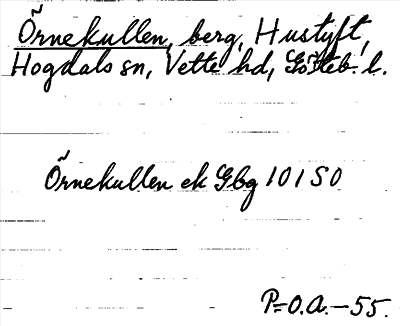 Örnekullen, berg, Hustyft,
Hogdals sn, Vette hd, Göteb. l.
Örnekullen ek Gbg 101 SO
P=O.A.-55.